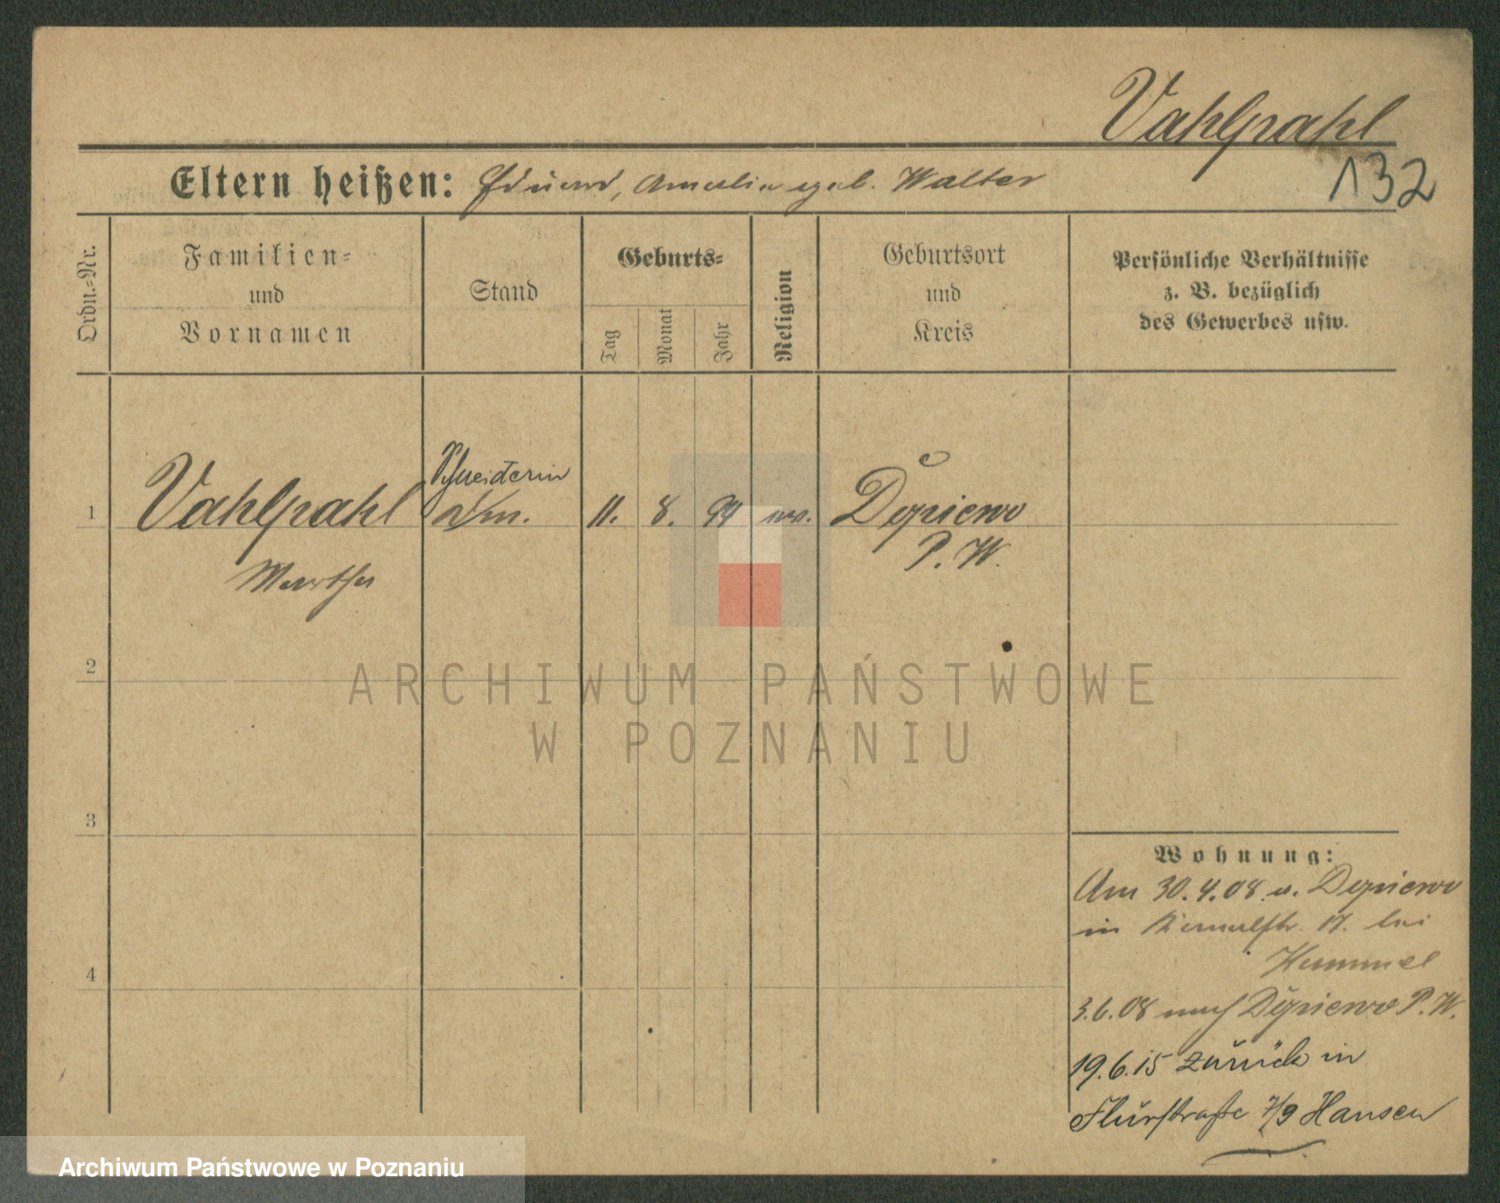 Vahlpahl
132
Eltern heißen: Eduard, Amalia geb. Walter
Ordn.-Nr.
Familien-
und
Vornamen
Stand
Geburts-
Tag
Monat
Jahr
Religion
Geburtsort
und
Kreis
Persönliche Verhältnisse
z. B. bezüglich
des Gewerbes usw.
Schneiderin
1 Vahlpahl 11. 8. 94 ev. Dopiewo
Martha P. W.
2
3
4
ARCHIWUM PAŃSTWOWE
W POZNANIU
Wohnung:
Am 30.4.08 v. Dopiewo
in 17. bei
Hummel
3.6.08 nach Dopiewo P. W.
19.6.15 zurück in
Flurstraße 7/9 Hansen
Archiwum Państwowe w Poznaniu